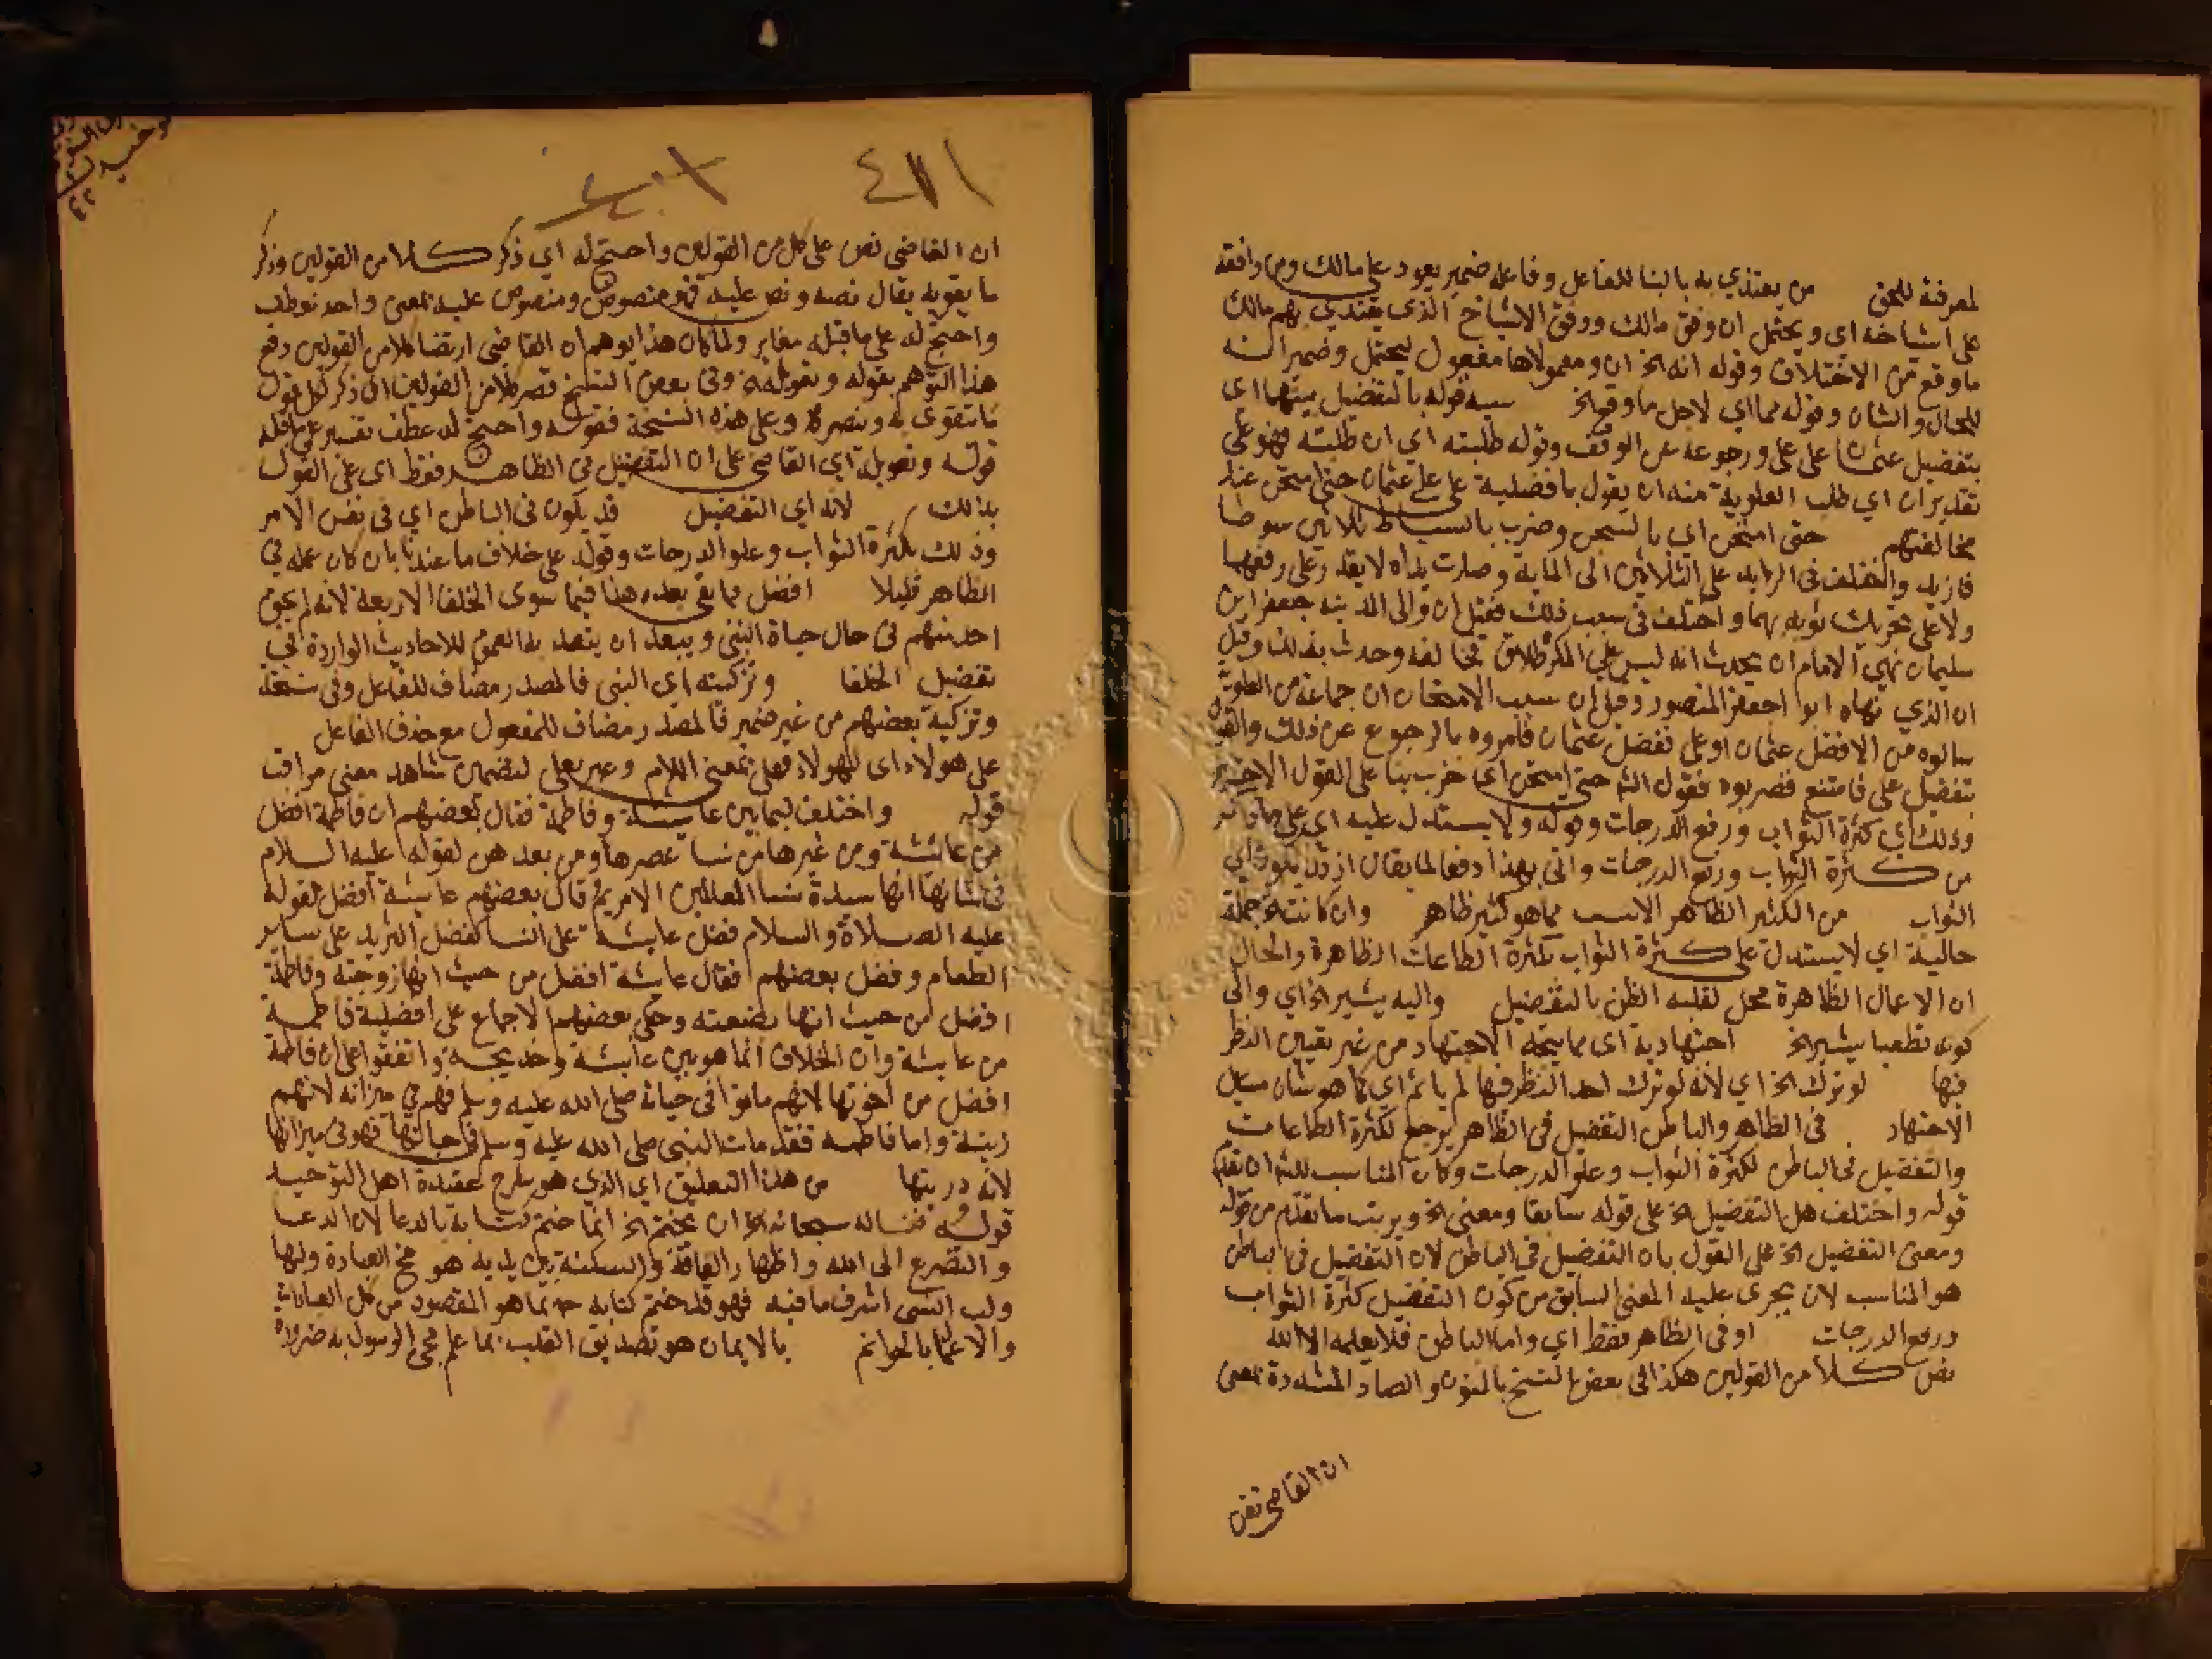 لمعرفة للحق من يقتدي به بالبنا للفاعل وفاعله ضمير يعود على مالك ومن وافقه
على اشياخه اى ويحتمل ان وفق مالك ووفق الاشياخ الذى يقتدي بهم مالك
ما وقع من الاختلاف وقوله انه الخ ان ومعمولاها مفعول ليحتمل وضمير انه
للحال والشان وقوله مما اي لاجل ما وقع الخ قوله بالتفضيل بينهما اى
بتفضيل عثمان على على ورجوعه عن الوقف وقوله طلبته اي ان طلبته فهو على
تقدير ان اي طلب العلوية منه ان يقول بافضلية على على عثمان حتى امتحن عند
مخالفتهم حتى امتحن اى بالسجن وضرب بالسياط ثلاثين سوطا
فازيد واختلف فى الزايد على الثلاثين الى الماية وصارت يداه لا يقدر على رفعها
ولا على تحريك ثوبه بهما واختلف فى سبب ذلك فقيل ان والى المدينة جعفر ابن
سليمان نهى الامام ان يحدث انه ليس على المكره طلاق فخالفه وحدث بذلك وقيل
ان الذي نهاه ابوا جعفر المنصور وقيل ان سبب الامتحان ان جماعة من العلوية
سالوه من الافضل عثمان او على ففضل عثمان فامروه بالرجوع عن ذلك والقول
بتفضيل على فامتنع فضربوه فقول الشر حتى امتحن اى ضرب بنا على القول الاخير
وذلك اي كثرة الثواب ورفع الدرجات وقوله ولا يستدل عليه اي على ما ذكر
من كثرة الثواب ورفع الدرجات واتى بهذا دفعا لما يقال اذ قد يكون اي
الثواب من الكثير الظاهر الانسب مما هو كثير ظاهر وان كانت الخ جملة
حالية اي لا يستدل على كثرة الثواب بكثرة الطاعات الظاهرة والحال
ان الاعمال الظاهرة محل لغلبه الظن بالتفضيل واليه يشير الخ اي والى
كونه قطعيا يشير الخ اجتهادية اى مما يتجه الاجتهاد من غير تعيين النظر
فيها لو ترك الخ اي لانه لو ترك احد النظر فيها لم ياثم اي كما هو شان مسايل
الاجتهاد فى الظاهر والباطن التفضيل فى الظاهر يرجع لكثرة الطاعات
والتفضيل فى الباطن لكثرة الثواب وعلو الدرجات وكان المناسب للشر ان يقدم
قوله واختلف هل التفضيل الخ على قوله سابقا ومعنى الخ ويرتب ما تقدم من قوله
ومعنى التفضيل الخ على القول بان التفضيل فى الباطن لان التفضيل فى الباطن
هو المناسب لان يجرى عليه المعنى السابق من كون التفضيل كثرة الثواب
ورفع الدرجات او فى الظاهر فقط اي واما الباطن فلا يعلمه الا الله
نص كلا من القولين هكذا فى بعض النسخ بالنون والصاد المشددة بمعنى
ان القاضى نص
٤٧١
ان القاضى نص على كل من القولين واحتج له اي ذكر كلا من القولين وذكر
ما يقويه يقال نصه ونص عليه فهو منصوص ومنصوص عليه بمعنى واحد فعطف
واحتج له على ما قبله مغاير ولما كان هذا يوهم ان القاضى ارتضا كلا من القولين دفع
هذا التوهم بقوله وتعويله الخ وفى بعض النسخ نصر كلا من القولين اى ذكر لكل قول
ما يتقوى به وينصره وعلى هذه النسخة فقوله واحتج له عطف تفسير على ما قبله
قوله وتعويله اي القاضى على ان التفضيل فى الظاهر فقط اى على القول
بذالك لانه اي التفضيل قد يكون فى الباطن اي فى نفس الامر
وذلك بكثرة الثواب وعلو الدرجات وقوله على خلاف ما عندنا بان كان عمله فى
الظاهر قليلا افضل ممن بقى بعده هذا فيما سوى الخلفا الاربعة لانه لم يمت
احد منهم فى حال حياة النبى ويبعد ان يقصد به العموم للاحاديث الواردة فى
تفضيل الخلفا وتزكيته اي النبى فالمصدر مضاف للفاعل وفى نسخة
وتزكية بعضهم من غير ضمير فالمصدر مضاف للمفعول مع حذف الفاعل
على هولاء اى لهولاء فعلى بمعنى اللام وعبر بعلى لتضمين شاهد معنى مراقب
قوله واختلف فيما بين عايشة وفاطمة فقال بعضهم ان فاطمة افضل
من عائشة ومن غيرها من نسا عصرها ومن بعدهن لقوله عليه السلام
فى شانها انها سيدة نسا العالمين الا مريم قال بعضهم عايشة افضل لقوله
عليه الصلاة والسلام فضل عايشة على النسا كفضل الثريد على ساير
الطعام وفضل بعضهم فقال عايشة افضل من حيث انها زوجته وفاطمة
افضل من حيث انها بضعته وحكى بعضهم الاجماع على افضلية فاطمة
من عايشة وان الخلاف انما هو بين عايشة وخديجة واتفقوا على ان فاطمة
افضل من اخوتها لانهم ماتوا فى حياته صلى الله عليه وسلم فهم فى ميزانه لانهم
زينة واما فاطمة فقد مات النبى صلى الله عليه وسلم فى حياتها فهو فى ميزانها
لانه ذريتها من هذا التعليق اي الذي هو شرح عقيدة اهل التوحيد
قوله فنساله سبحانه الخ ان يختم الخ انما ختم كتابه بالدعا لان الدعا
والتضرع الى الله واظهار الفاقة والسكنة بين يديه هو مخ العبادة ولبها
ولب الشى اشرف ما فيه فهو قد ختم كتابه بما هو المقصود من كل العبادات
والاعمال بالخواتم بالايمان هو تصديق القلب بما علم مجى الرسول به ضرورة